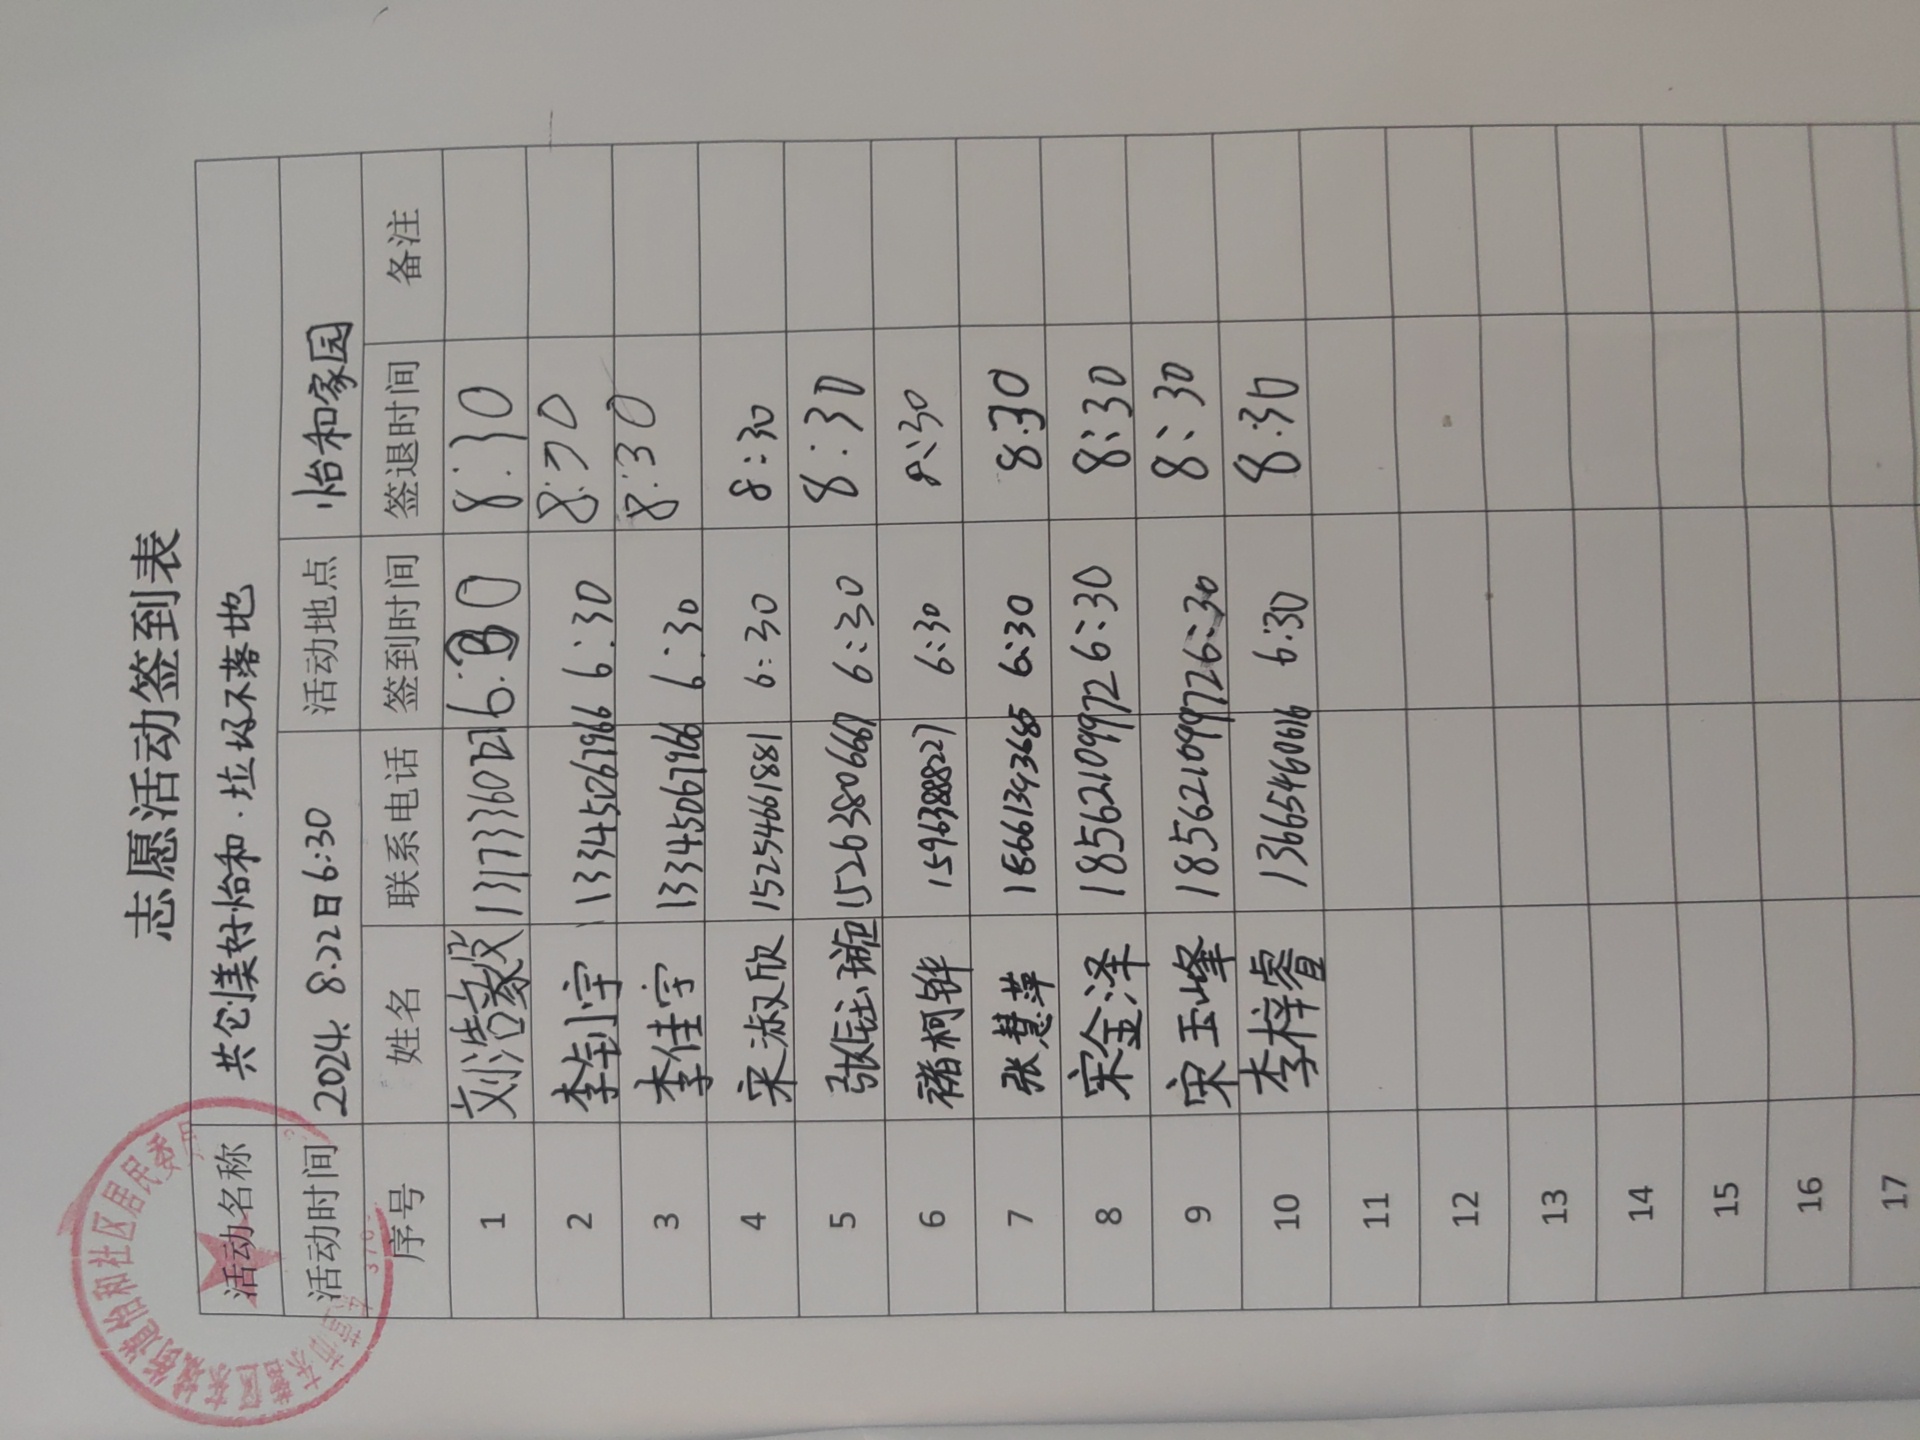 志愿活动签到表
活动名称 共创美好怡和·垃圾不落地
活动时间 2024. 8.22日6:30 活动地点 怡和家园
序号 姓名 联系电话 签到时间 签退时间 备注
1 刘浩 6:30 8:30
2 李钊宇 13345067966 6:30 8:30
3 李佳宇 13345067966 6:30 8:30
4 宋淑欣 15254661881 6:30 8:30
5 张钰璇 15263806667 6:30 8:30
6 褚柯铧 15963888227 6:30 8:30
7 张慧苹 6:30 8:30
8 宋金泽 18562109972 6:30 8:30
9 宋玉峰 18562109972 6:30 8:30
10 李梓睿 13665460616 6:30 8:30
11
12
13
14
15
16
17
街道怡和社区居民委员